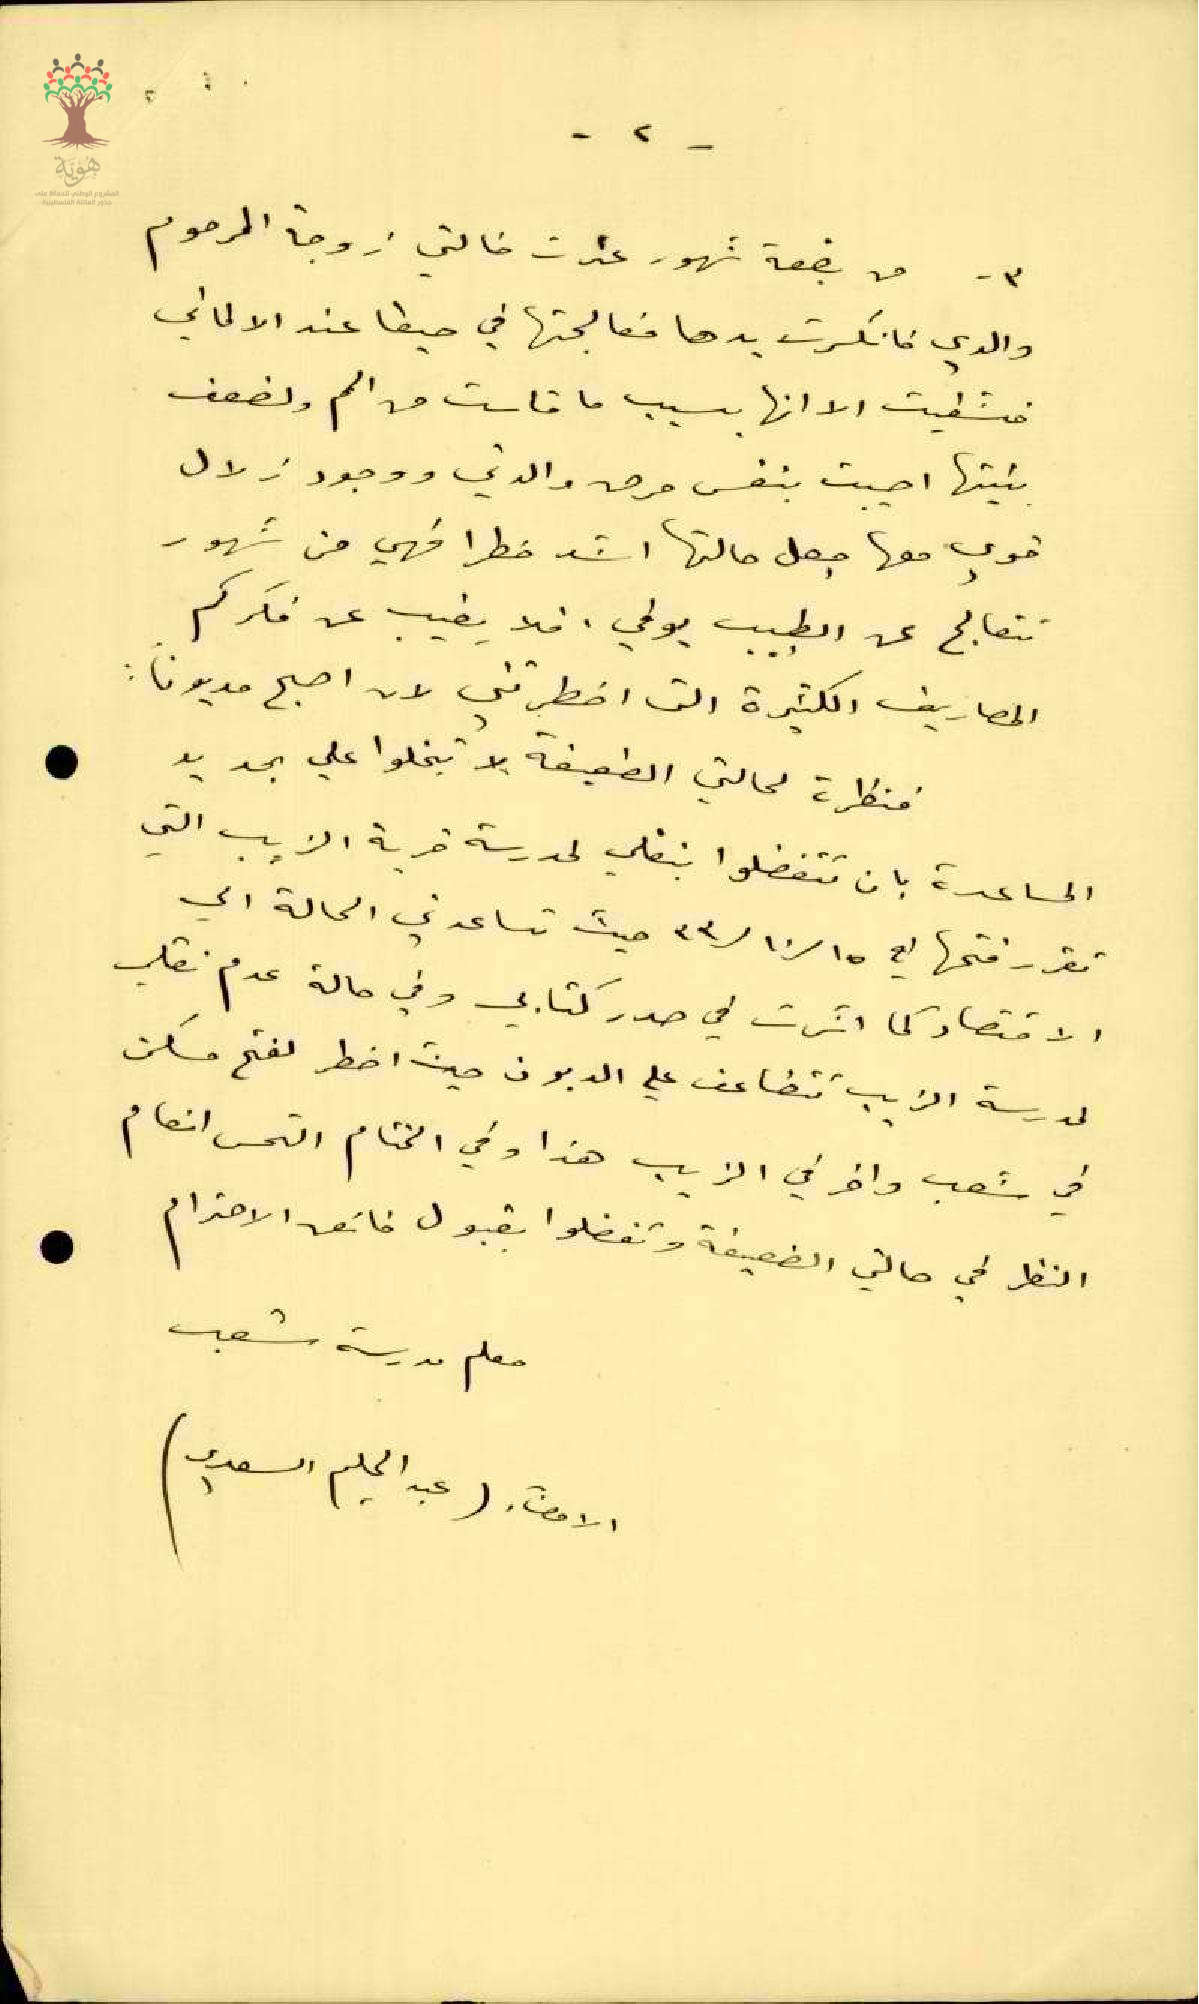 هُوِيَّة
المشروع الوطني للحفاظ على
جذور العائلة الفلسطينية
- ٢ -
٣- من بضعة شهور عثرت خالتي زوجة المرحوم
والدي فانكسرت يدها فعالجتها في حيفا عند الالماني
فشفيت الا انها بسبب ما قاست من الم ولضعف
بنيتها اصيبت بنفس مرض والدتي ووجود زلال
قوي معها جعل حالتها اشد خطرا فهي من شهور
تتعالج عن الطبيب يوفي، فلا يغيب عن فكركم
المصاريف الكثيرة التي اضطرتني لان اصبح مديوناً:
فنظرة لحالتي الضعيفة لا تبخلوا علي بمد يد
المساعدة بان تتفضلوا بنقلي لمدرسة قرية الزيب التي
تقرر فتحها في ١٥/١٠/٣٣ حيث تساعدني الحالة الى
الاقتصاد كما اشرت في صدر كتابي وفي حالة عدم نقلي
لمدرسة الزيب تتضاعف علي الديون حيث اضطر لفتح مسكن
في شعب واخر في الزيب هذا وفي الختام التمس انعام
النظر في حالتي الضعيفة وتفضلوا بقبول فائق الاحترام
معلم مدرسة شعب
الامضاء (عبد الحليم السعدي)